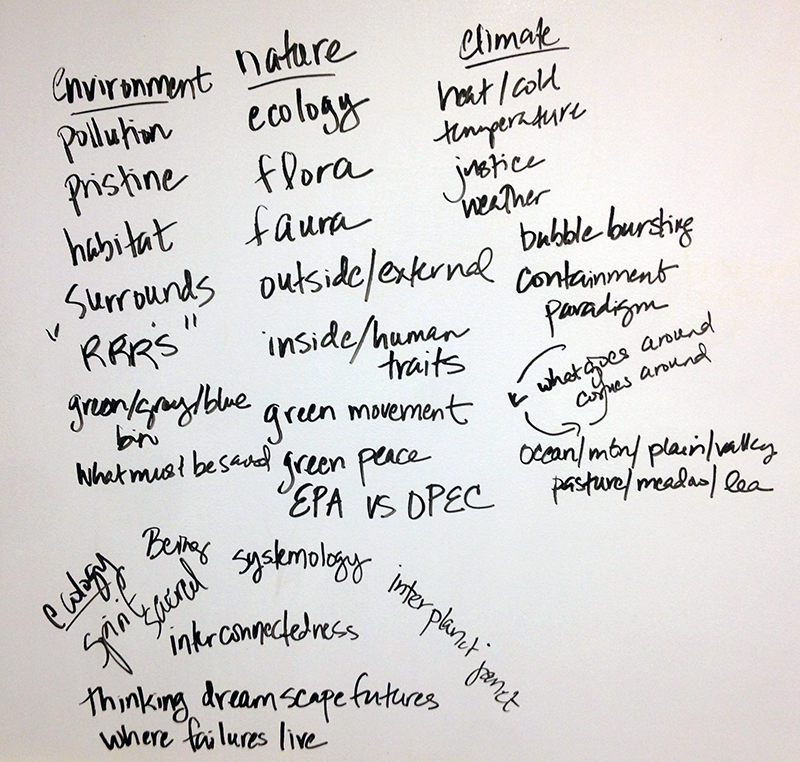 environment
pollution
pristine
habitat
surrounds
"RRR's"
green/gray/blue
bin
what must be saved
nature
ecology
flora
faura
outside/external
inside/human
traits
green movement
green peace
EPA vs OPEC
climate
heat/cold
temperature
justice
weather
bubble bursting
containment
paradigm
what goes around
comes around
ocean/mtn/plain/valley
pasture/meadow/lea
ecology
spirit
Being
sacred
systemology
interconnectedness
thinking dreamscape futures
where failures live